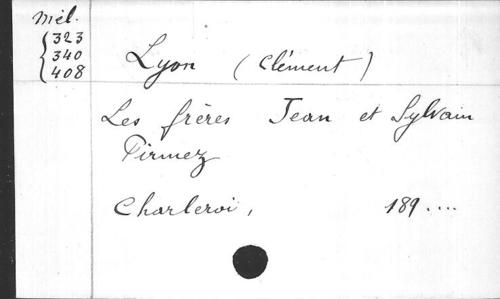 Mél.
323
340
408
Lyon (Clément)
Les frères Jean et Sylvain
Pirmez
Charleroi, 189....